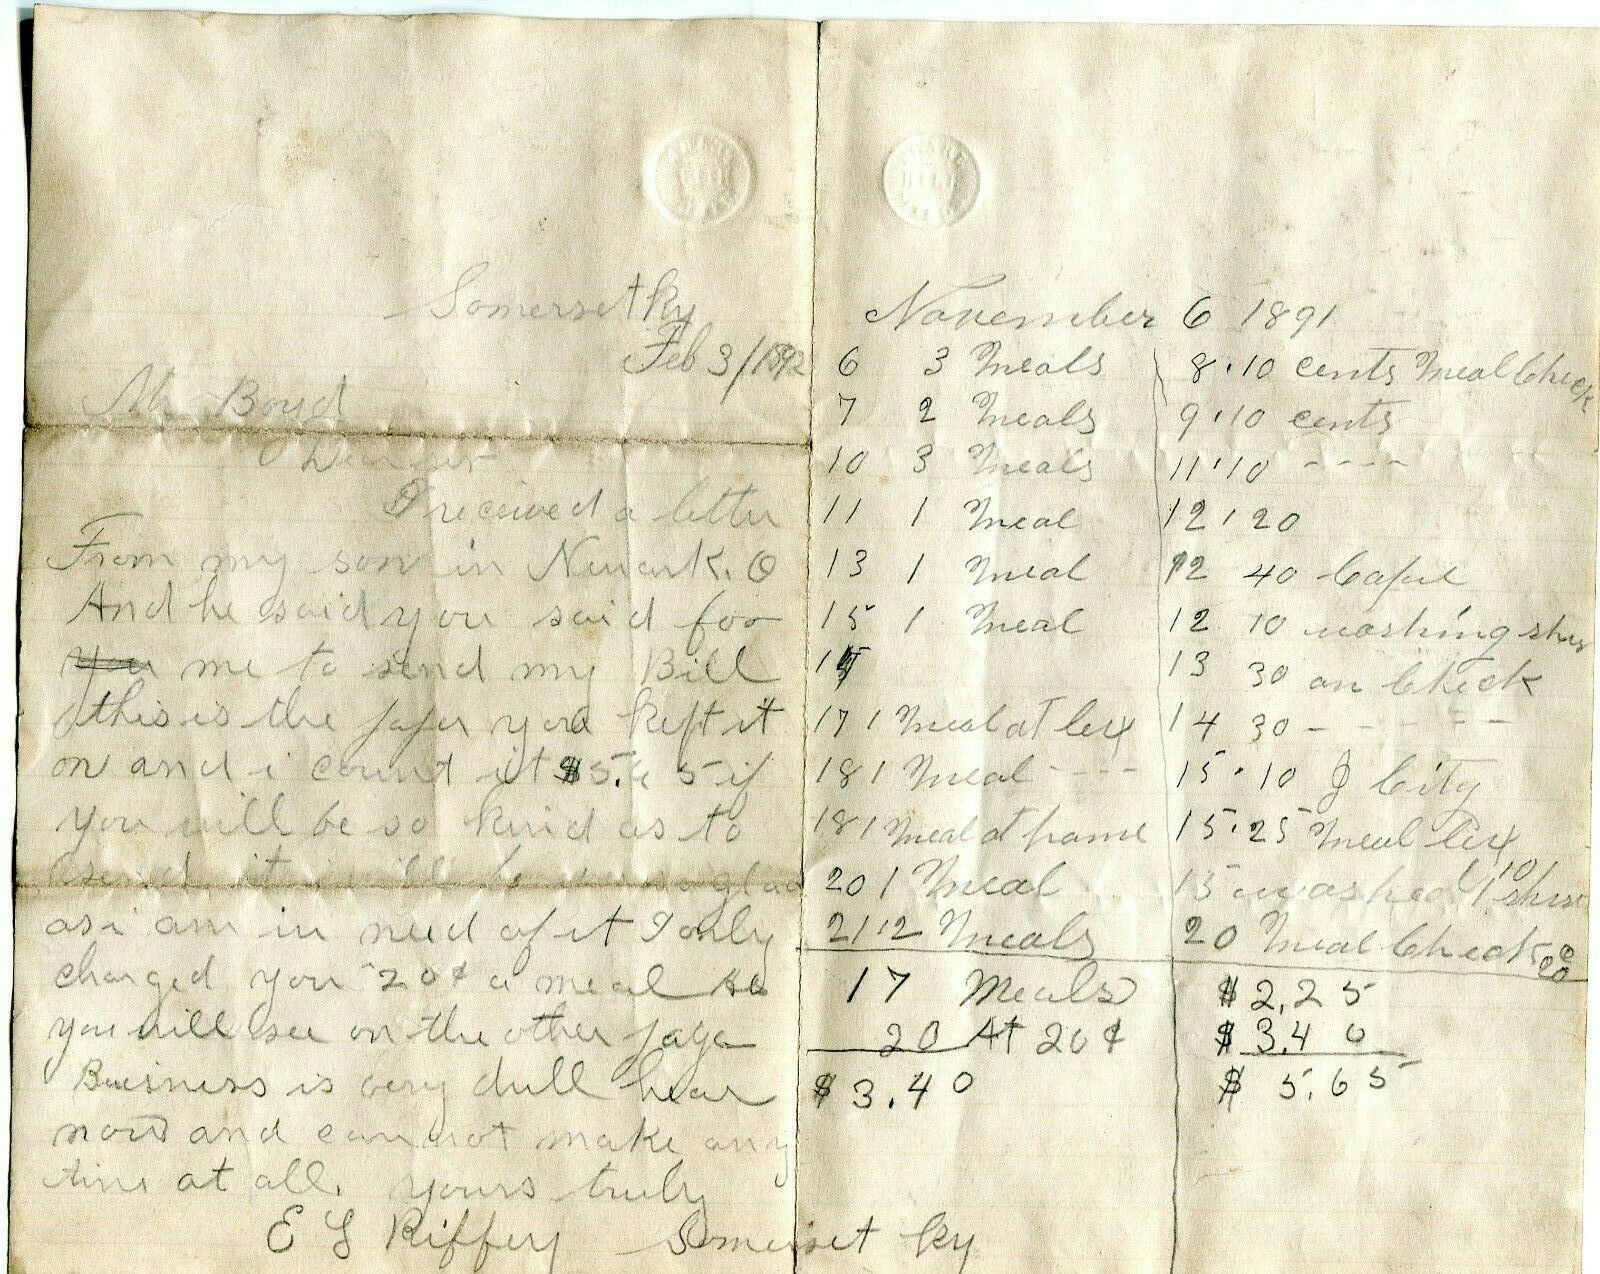 Somerset Ky
Feb 3/1892
Mr Boyd
Dear sir
I received a letter
From my son in Newark. O
And he said you said foo
You me to send my Bill
this is the paper you kept it
on and i count it $5.65 if
you will be so kind as to
send it i will be glad
as i am in need of it I only
charged you 20¢ a meal As
you will see on the other page
Buisness is very dull hear
now and can not make any
time at all. yours truly
E L Riffey Somerset Ky
November 6 1891
6 3 Meals
7 2 Meals
10 3 Meals
11 1 Meal
13 1 Meal
15 1 Meal
17 1 Meal at Lex
18 1 Meal - - - -
18 1 Meal at home
20 1 Meal
21 . 2 Meals
17 Meals
20 At 20¢
$ 3.40
8 . 10 cents Meal Check
9 . 10 cents
11 . 10 - - - -
12 . 20
12 40
12 10 washing
13 30 on Check
14 30 - - - - -
15 . 10 City
15 . 25 Meal Lex
15 washed 1 10
20 Meal Check 20
$ 2,25
$ 3.40
$ 5.65